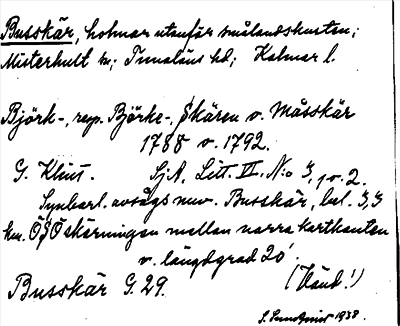 Busskär, holmar utanför smålandskusten;
Misterhult sn; Tunaläns hd; Kalmar l.
Björk-, resp. Björke-, Skären v. Måsskär
1788 v. 1792.
G. Klint. Sj.A. Litt. II. N:o 3, 1 o. 2.
Synbarl. avsågs nuv. Busskär, bel. 3,3
km. ÖSÖ skärningen mellan norra kartkanten
v. längdgrad 20'.
Busskär G. 29. (Vänd!)
1938.